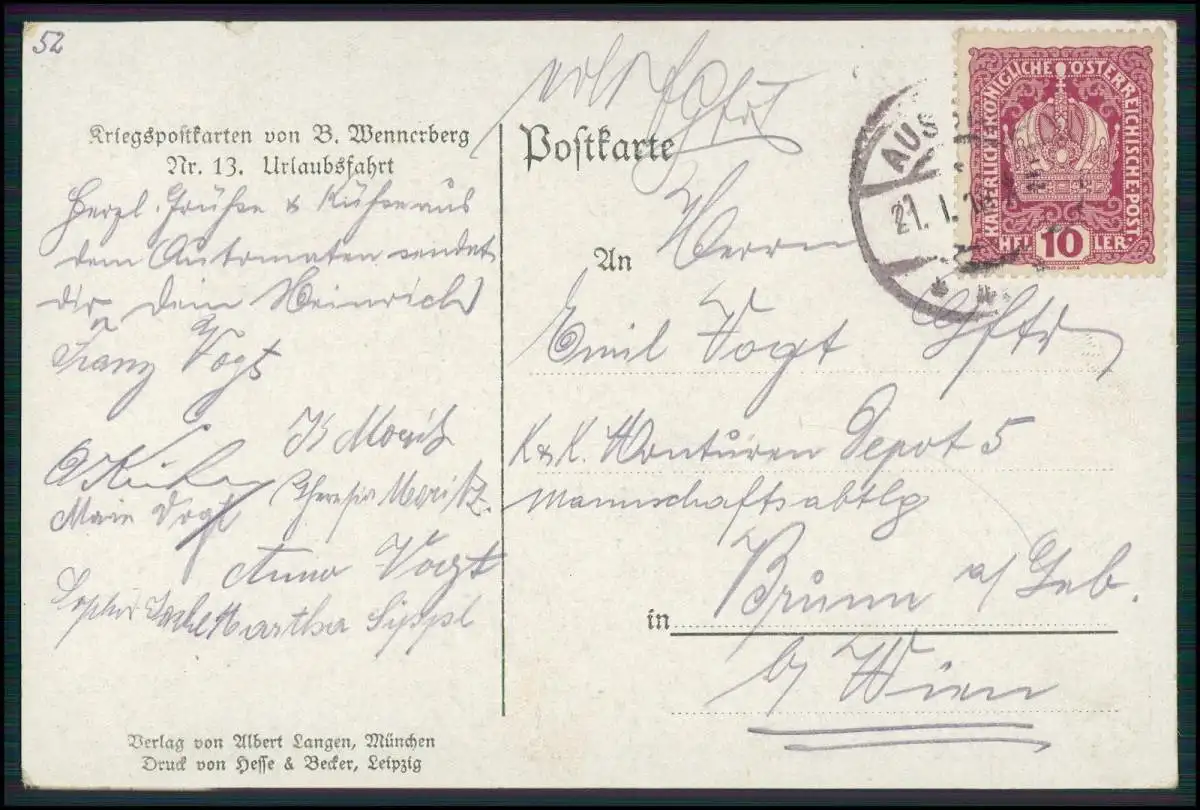 52
Kriegspostkarten von B. Wennerberg
Nr. 13. Urlaubsfahrt
Herzl. Grüße & Küße aus
dem Automaten sendet
dir Dein Heinrich
Franz Vogt
K Moritz
Marie Vogt
Theresia Moritz.
Anna Vogt
Martha Sippl
Verlag von Albert Langen, München
Druck von Hesse & Becker, Leipzig
Postkarte
An Herrn
Emil Vogt Gftr
K & K. Monturen Depot 5
Mannschaftsabtlg
in Brunn a/ Geb.
b/ Wien
AUS
21. I.
KAISERLICHE KÖNIGLICHE ÖSTERREICHISCHE POST
HELLER
10